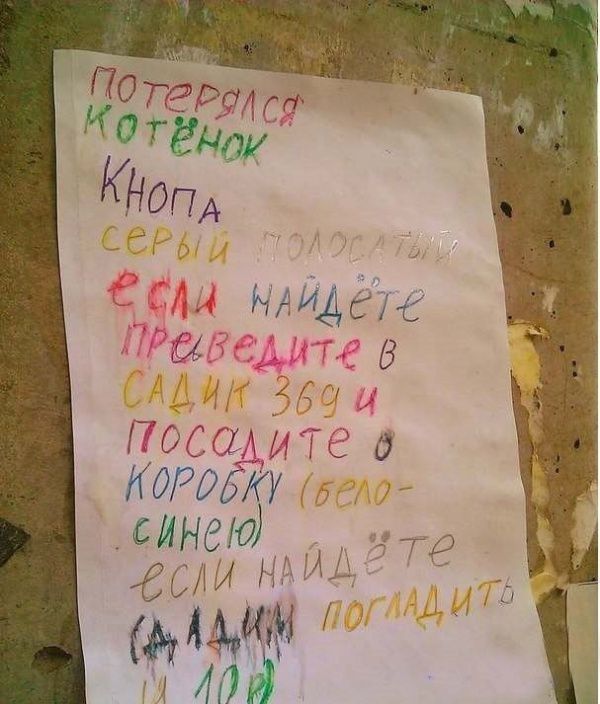 ПОТЕРЯЛСЯ
КОТЁНОК
КНОПА
СЕРЫЙ ПОЛОСАТЫЙ
если НАЙДЁТЕ
ПРЕВЕДИТЕ В
САДИК 369 и
ПОСАДИТЕ В
КОРОБКУ (БЕЛО-
СИНЕЮ)
если НАЙДЁТЕ
ДАДИМ ПОГЛАДИТЬ
И 10 р